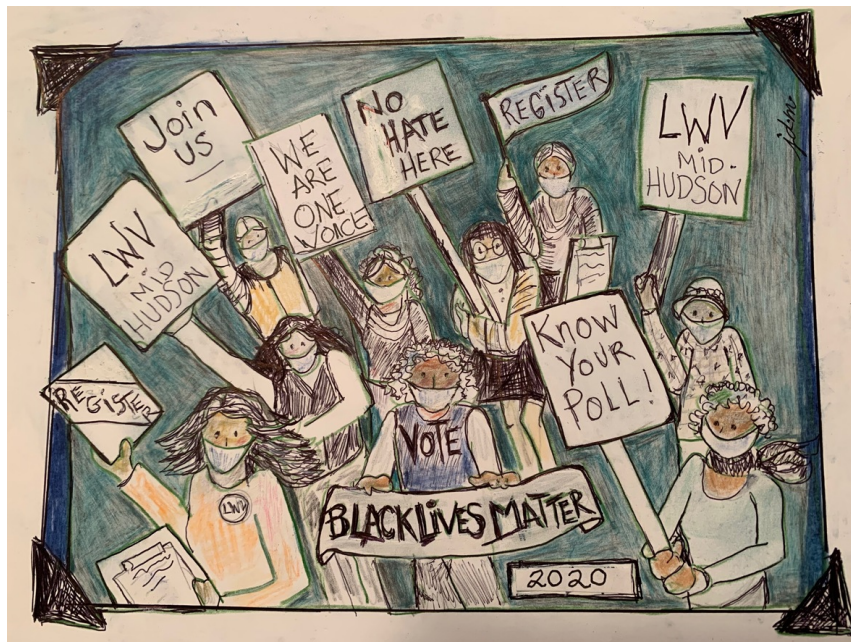 Join
US
WE
ARE
ONE
VOICE
NO
HATE
HERE
REGISTER
LWV
MID-
HUDSON
jdm
LWV
MID
HUDSON
REGISTER
KNOW
YOUR
POLL!
VOTE
LWV
BLACK LIVES MATTER
2020